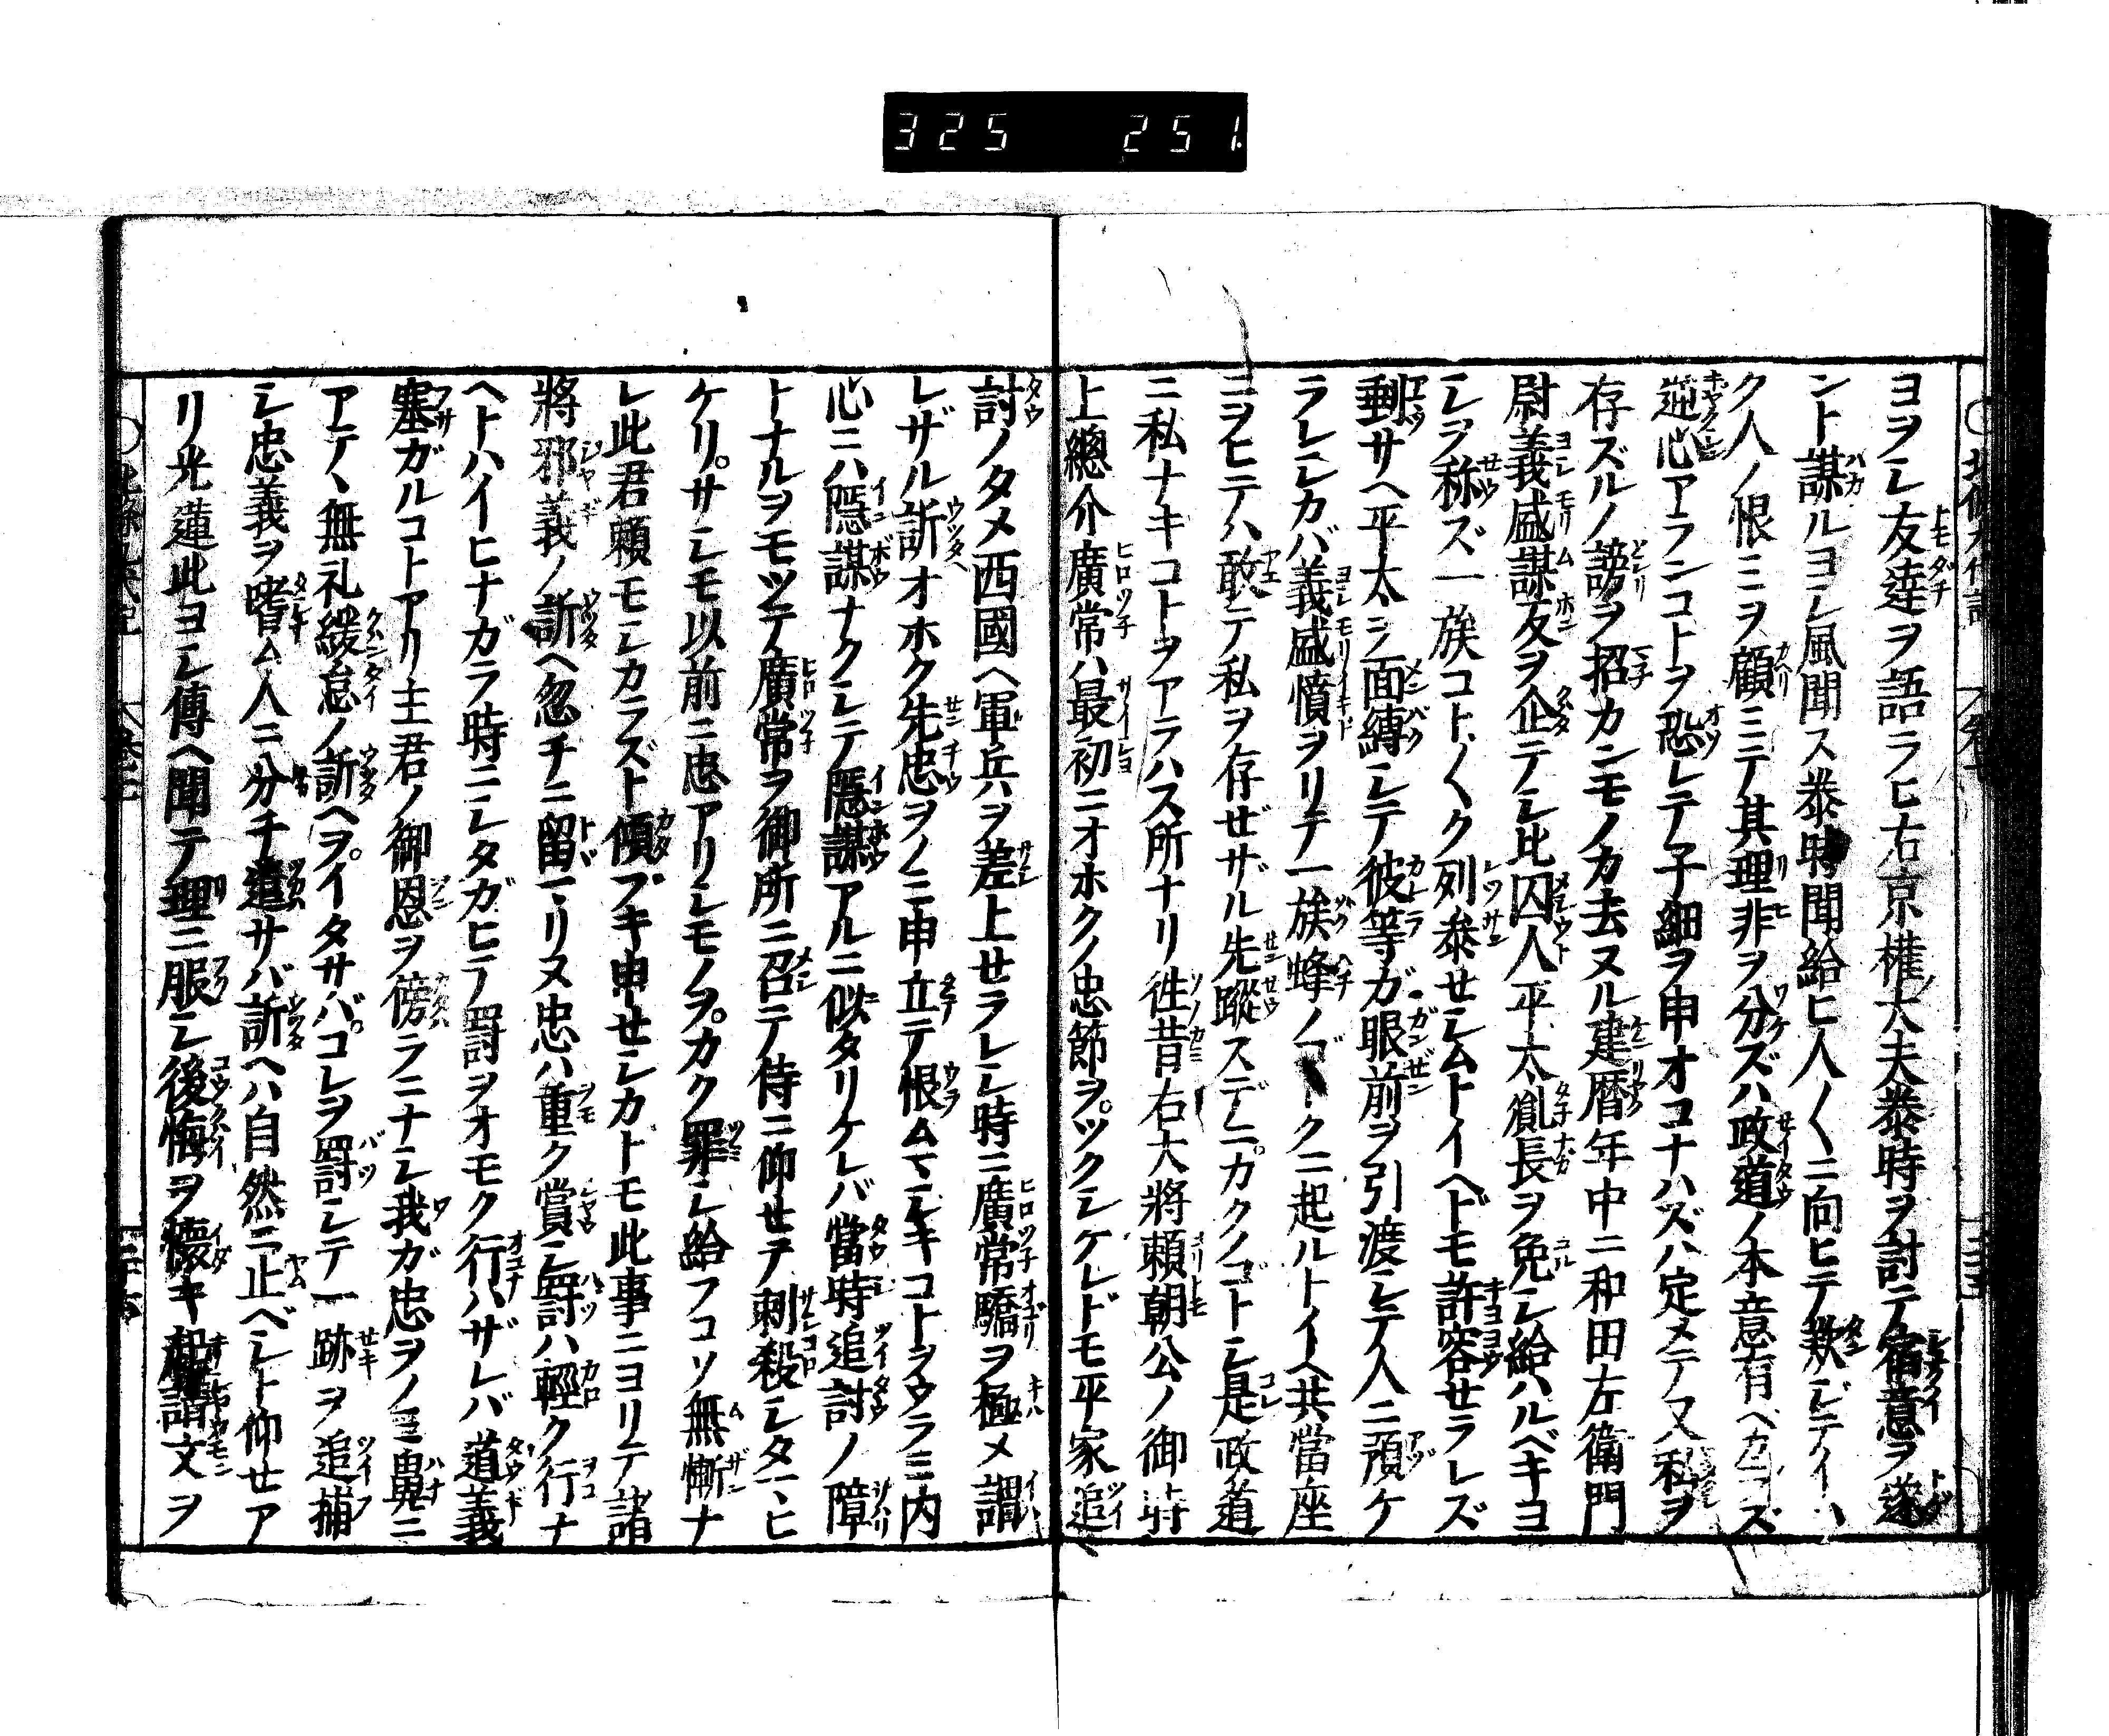 325 251
ヨヲシ友達ヲ語ラヒ右京權大夫泰時ヲ討テ宿意ヲ遂
ント謀ルヨシ風聞ス泰時聞給ヒ人〱ニ向ヒテ歎ジテイハ
ク人ノ恨ミヲ顧ミテ其理非ヲ分ズハ政道ノ本意有ベカラズ
逆心アランコトヲ恐レテ子細ヲ申オコナハズハ定メテ又私ヲ
存ズルノ謗ヲ招カンモノカ去ヌル建暦年中ニ和田左衛門
尉義盛謀友ヲ企テシ比囚人平太胤長ヲ免シ給ハルベキヨ
シヲ称ズ一族コト〱ク列参セシムトイヘドモ許容セラレズ
剰サヘ平太ヲ面縛シテ彼等ガ眼前ヲ引渡シテ人ニ預ケ
ラレシカバ義盛憤ヲリテ一族蜂ノゴトクニ起ルトイヘ共當座
ニヲヒテハ敢テ私ヲ存ゼザル先蹤スデニカクノゴトシ是政道
ニ私ナキコトヲアラハス所ナリ徃昔右大將頼朝公ノ御時
上總介廣常ハ最初ニオホクノ忠節ヲツクシケレドモ平家追
討ノタメ西國ヘ軍兵ヲ差上セラレシ時ニ廣常驕ヲ極メ謂
レザル訴オホク先忠ヲノミ申立テ恨ムマシキコトヲウラミ内
心ニハ隱謀ナクシテ隱謀アルニ似タリケレバ當時追討ノ障
トナルヲモツテ廣常ヲ御所ニ召テ侍ニ仰セテ刺殺シタマヒ
ケリサシモ以前ニ忠アリシモノヲカク罪シ給フコソ無慚ナ
レ此君頼モシカラズト傾ブキ申セシカトモ此事ニヨリテ諸
將邪義ノ訴ヘ忽チニ留マリヌ忠ハ重ク賞シ罸ハ輕ク行ナ
ヘトハイヒナガラ時ニシタガヒテ罸ヲオモク行ハザレバ道義
塞ガルコトアリ主君ノ御恩ヲ傍ラニナシ我ガ忠ヲノミ鼻ニ
アテヽ無礼緩怠ノ訴ヘヲイタサバコレヲ罸シテ一跡ヲ追捕
シ忠義ヲ嗜ム人ニ分チ遣サバ訴ヘハ自然ニ止ベシト仰セア
リ光蓮此ヨシ傳ヘ聞テ理ニ服シ後悔ヲ懷キ起請文ヲ